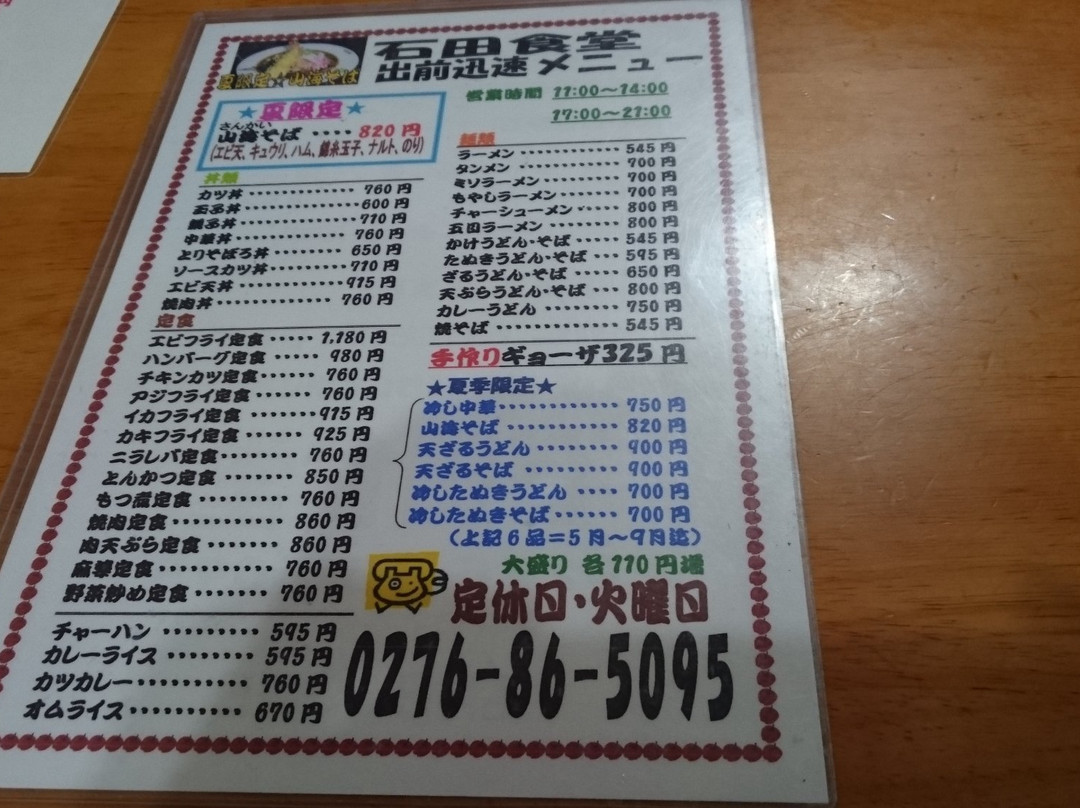 石田食堂
出前迅速メニュー
夏限定☆山海そば
営業時間 11:00～14:00
17:00～21:00
★夏限定★
さんかい
山海そば ････ 820円
(エビ天、キュウリ、ハム、錦糸玉子、ナルト、のり)
丼類
カツ丼 760円
玉子丼 600円
親子丼 710円
中華丼 760円
とりそぼろ丼 650円
ソースカツ丼 710円
エビ天丼 915円
焼肉丼 760円
定食
エビフライ定食 1,180円
ハンバーグ定食 980円
チキンカツ定食 760円
アジフライ定食 760円
イカフライ定食 915円
カキフライ定食 925円
ニラレバ定食 760円
とんかつ定食 850円
もつ煮定食 760円
焼肉定食 860円
肉天ぷら定食 860円
麻婆定食 760円
野菜炒め定食 760円
チャーハン 595円
カレーライス 595円
カツカレー 760円
オムライス 670円
麺類
ラーメン 545円
タンメン 700円
ミソラーメン 700円
もやしラーメン 700円
チャーシューメン 800円
五目ラーメン 800円
かけうどん・そば 545円
たぬきうどん・そば 595円
ざるうどん・そば 650円
天ぷらうどん・そば 800円
カレーうどん 750円
焼そば 545円
手作りギョーザ325円
★夏季限定★
冷し中華 750円
山海そば 820円
天ざるうどん 900円
天ざるそば 900円
冷したぬきうどん 700円
冷したぬきそば 700円
(上記6品=5月～9月迄)
大盛り 各110円増
定休日・火曜日
0276-86-5095